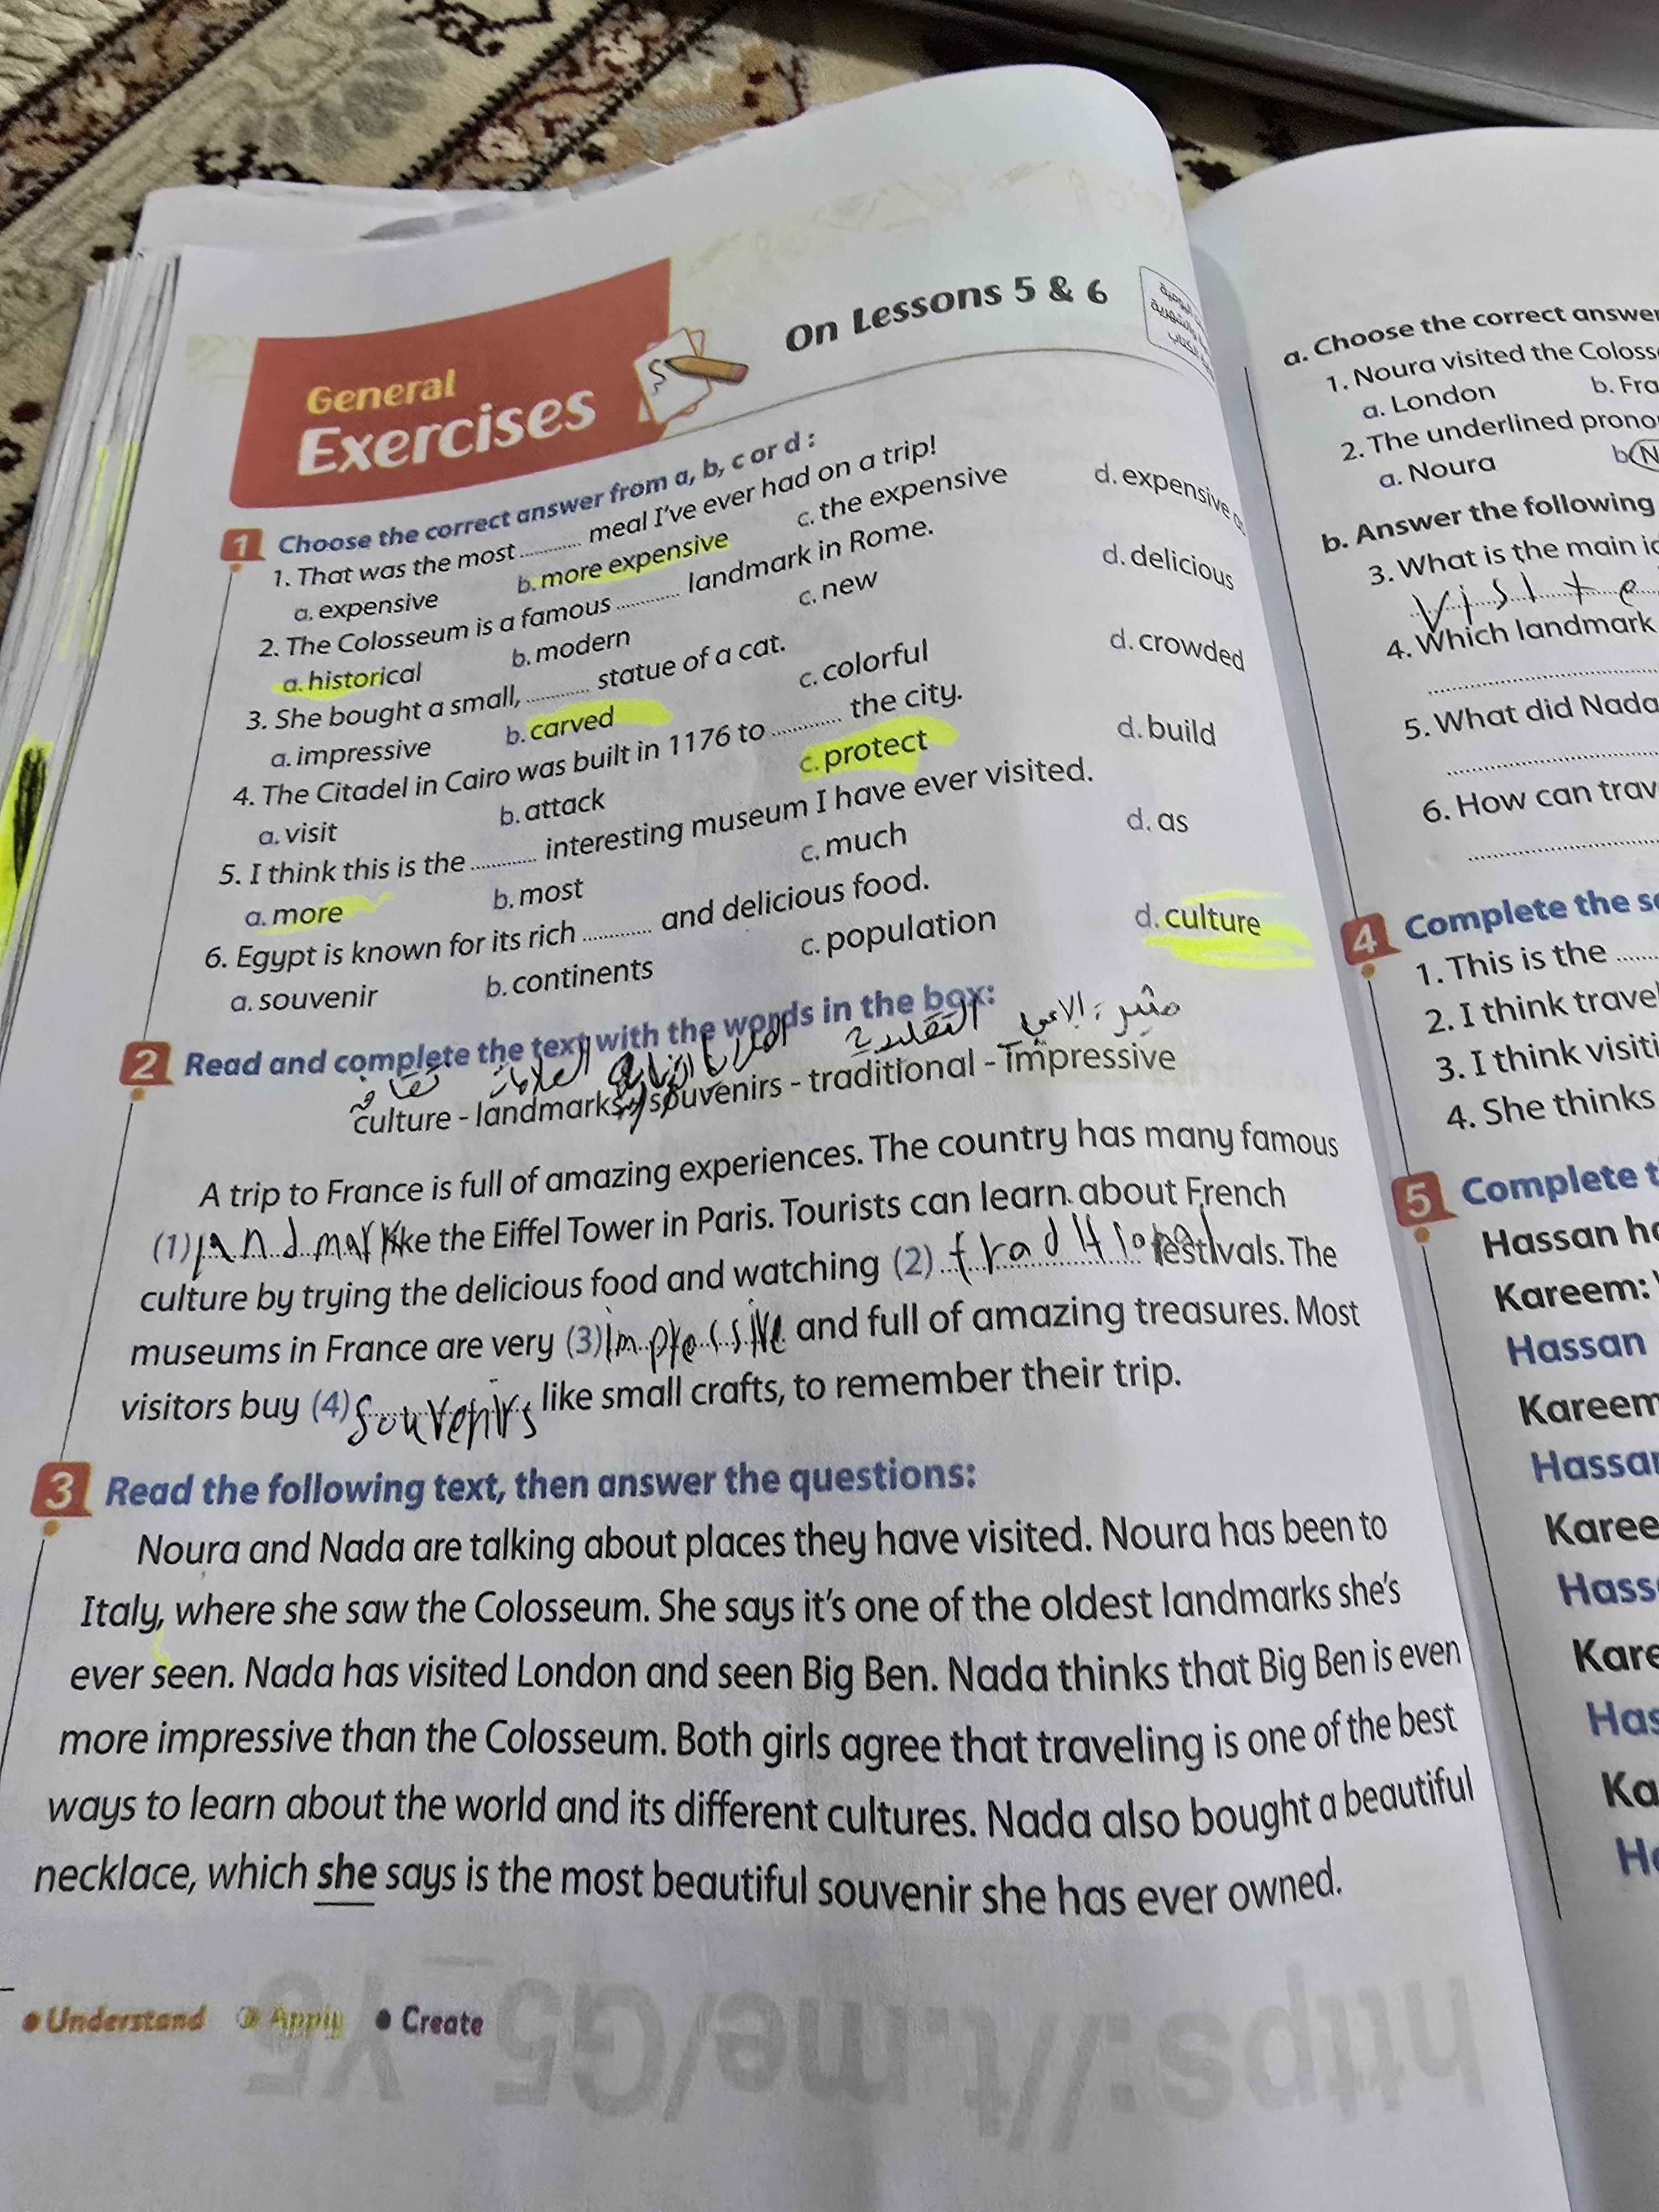 General
Exercises
On Lessons 5 & 6
1 Choose the correct answer from a, b, c or d :
1. That was the most ............ meal I've ever had on a trip!
a. expensive b. more expensive c. the expensive d. expensive
2. The Colosseum is a famous ............ landmark in Rome.
a. historical b. modern c. new d. delicious
3. She bought a small, ............ statue of a cat.
a. impressive b. carved c. colorful d. crowded
4. The Citadel in Cairo was built in 1176 to ............ the city.
a. visit b. attack c. protect d. build
5. I think this is the ............ interesting museum I have ever visited.
a. more b. most c. much d. as
6. Egypt is known for its rich ............ and delicious food.
a. souvenir b. continents c. population d. culture
2 Read and complete the text with the words in the box:
التقليدية
culture - landmarks - souvenirs - traditional - impressive
A trip to France is full of amazing experiences. The country has many famous
(1) landmark like the Eiffel Tower in Paris. Tourists can learn about French
culture by trying the delicious food and watching (2) traditional festivals. The
museums in France are very (3) impressive and full of amazing treasures. Most
visitors buy (4) souvenirs like small crafts, to remember their trip.
3 Read the following text, then answer the questions:
Noura and Nada are talking about places they have visited. Noura has been to
Italy, where she saw the Colosseum. She says it's one of the oldest landmarks she's
ever seen. Nada has visited London and seen Big Ben. Nada thinks that Big Ben is even
more impressive than the Colosseum. Both girls agree that traveling is one of the best
ways to learn about the world and its different cultures. Nada also bought a beautiful
necklace, which she says is the most beautiful souvenir she has ever owned.
Understand Apply Create
https://t.me/G5_Y5
a. Choose the correct answer
1. Noura visited the
a. London b.
2. The underlined
a. Noura b.
b. Answer the following
3. What is the main
4. Which landmark
5. What did Nada
6. How can
4 Complete the
1. This is the ......
2. I think
3. I think
4. She thinks
5 Complete
Hassan
Kareem:
Hassan
Kareem